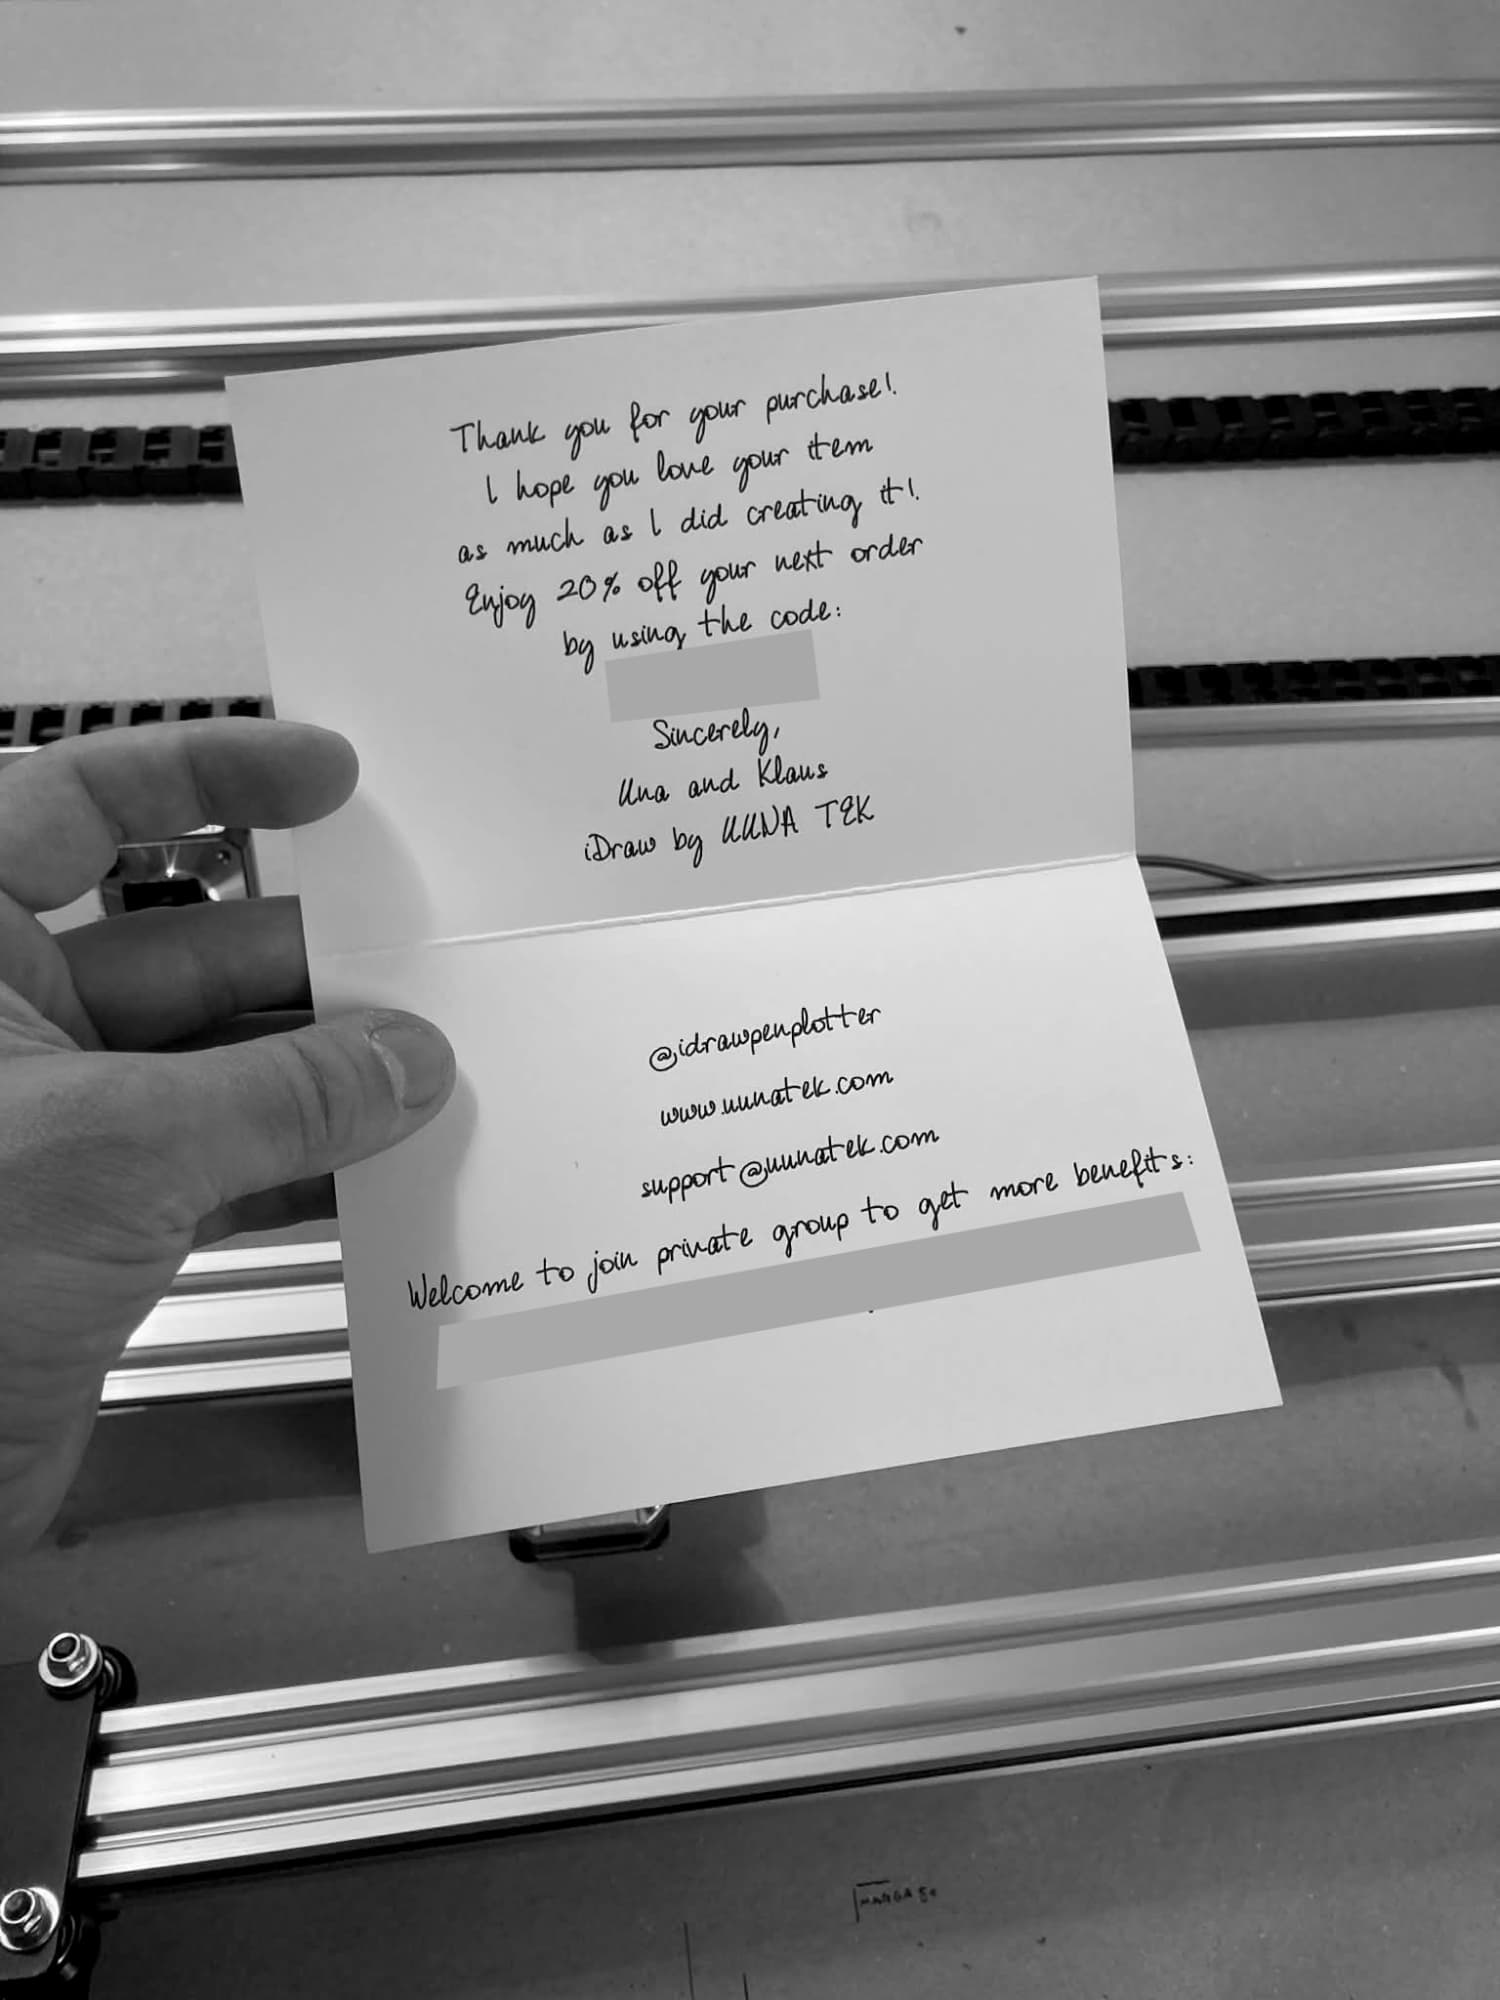 Thank you for your purchase!
I hope you love your item
as much as I did creating it!
Enjoy 20% off your next order
by using the code:
Sincerely,
Una and Klaus
iDraw by UUNA TEK
@idrawpenplotter
www.uunatek.com
support@uunatek.com
Welcome to join private group to get more benefits: